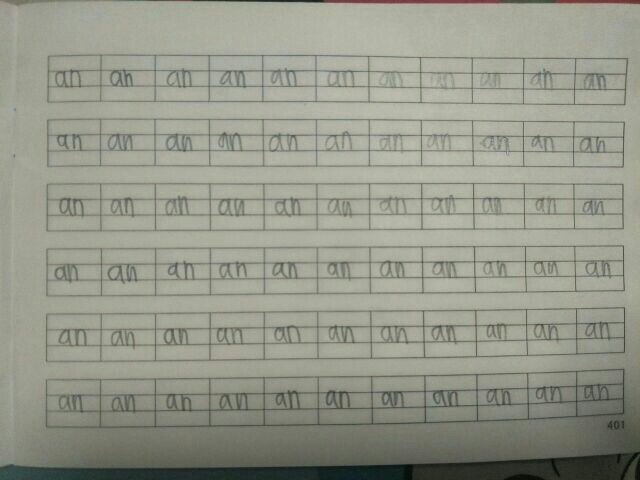 an an an an an an an an an an an
an an an an an an an an an an an
an an an an an an an an an an an
an an an an an an an an an an an
an an an an an an an an an an an
an an an an an an an an an an an
401